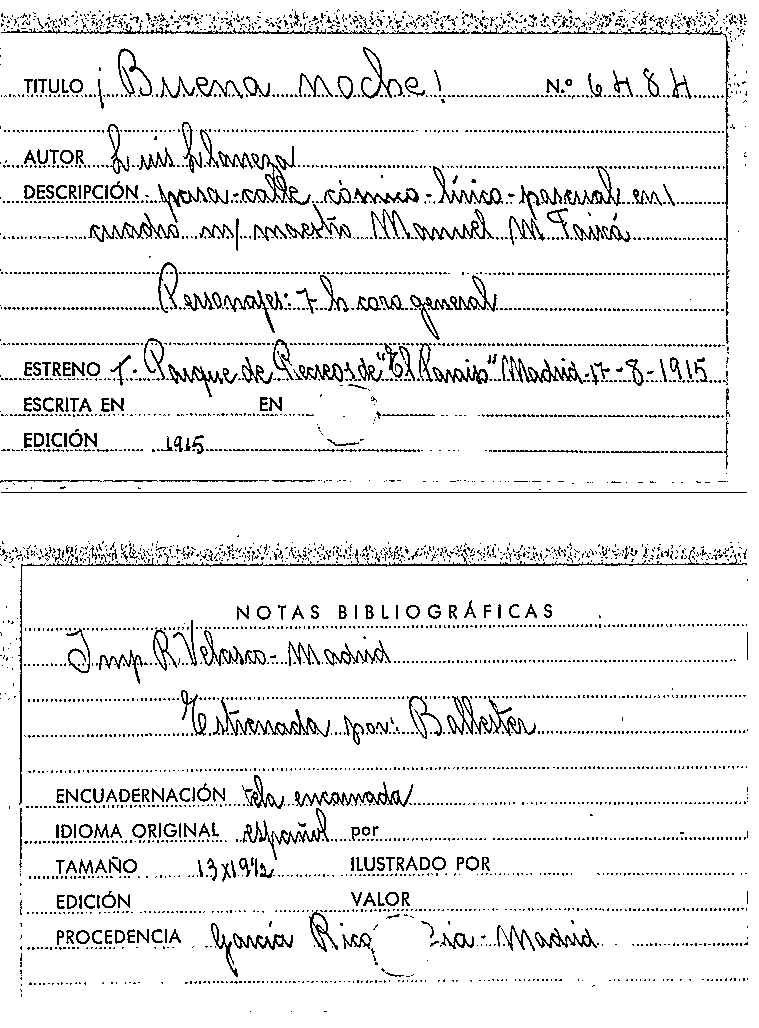 TITULO ¡Buena noche! N.º 6484
AUTOR Luis Llaneza
DESCRIPCIÓN - pasa-calle cómico-lírico-pascual en 1
cuadro m/ maestro Manuel M. Faixá
Personajes: 7 h coro general
ESTRENO T. Parque de Recreos de "El Paraiso" Madrid-17-8-1915
ESCRITA EN EN
EDICIÓN 1915
NOTAS BIBLIOGRÁFICAS
Imp R. Velasco - Madrid
Estrenada por: Ballester
ENCUADERNACIÓN tela encarnada
IDIOMA ORIGINAL español por
TAMAÑO 13x19½ ILUSTRADO POR
EDICIÓN VALOR
PROCEDENCIA García Rico - Madrid